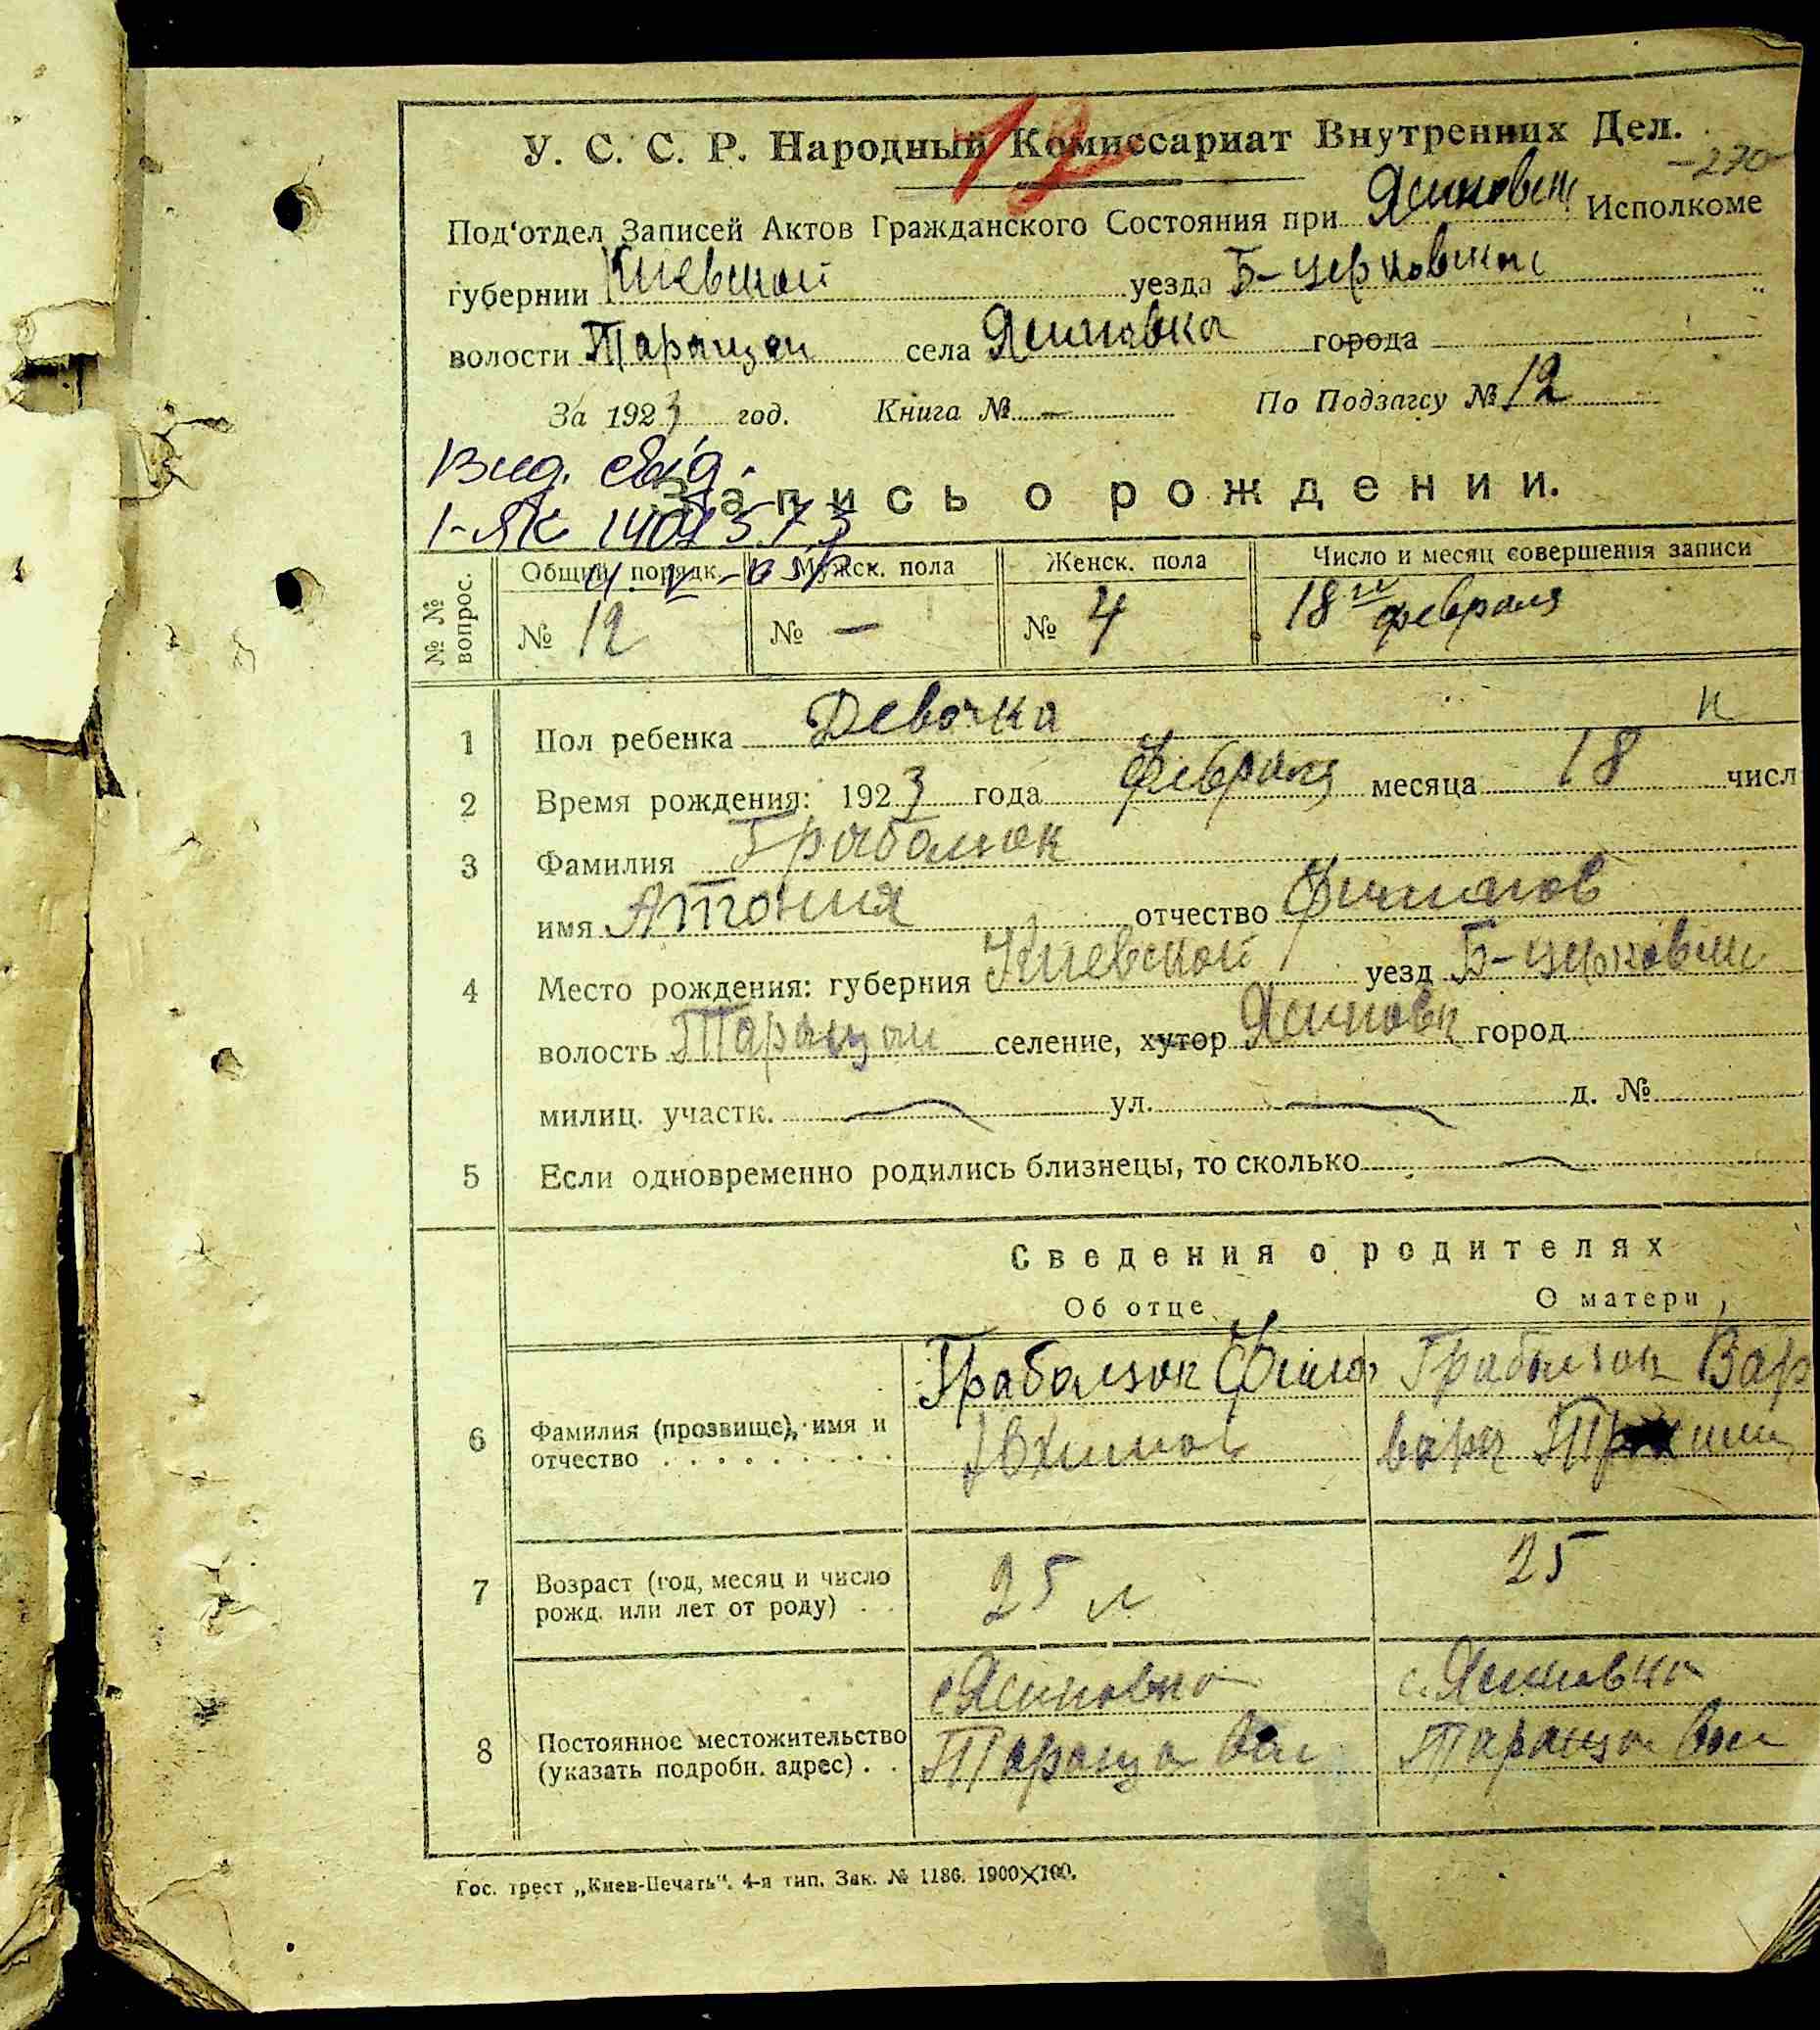 12
У. С. С. Р. Народный Комиссариат Внутренних Дел.
-270-
Под'отдел Записей Актов Гражданского Состояния при Ясиновск Исполкоме
губернии Киевской уезда Б-церковской
волости Таращан села Ясиновка города
За 1923 год. Книга № — По Подзагсу № 12
Вид. свид.
Запись о рождении.
I-ЯК
№ № вопрос. Общий порядк. Мужск. пола Женск. пола Число и месяц совершения записи
№ 12 № — № 4 18го февраля
1 Пол ребенка Девочка
2 Время рождения: 1923 года февраля месяца 18 числ
3 Фамилия Грабальок
имя Атония отчество
4 Место рождения: губерния Киевской уезд Б-церковск
волость Таращан селение, хутор Ясиновк город
милиц. участк. — ул. — д. №
5 Если одновременно родились близнецы, то сколько —
Сведения о родителях
Об отце О матери
Грабальок Грабальок Вар
6 Фамилия (прозвище), имя и
отчество . . . . . . . . . вара
7 Возраст (год, месяц и число
рожд. или лет от роду) . . 25 л 25
с Ясиновка с. Ясиновка
8 Постоянное местожительство
(указать подробн. адрес) . . Тараща вол Тараща вол
Гос. трест „Киев-Печать“. 4-я тип. Зак. № 1186. 1900×100.